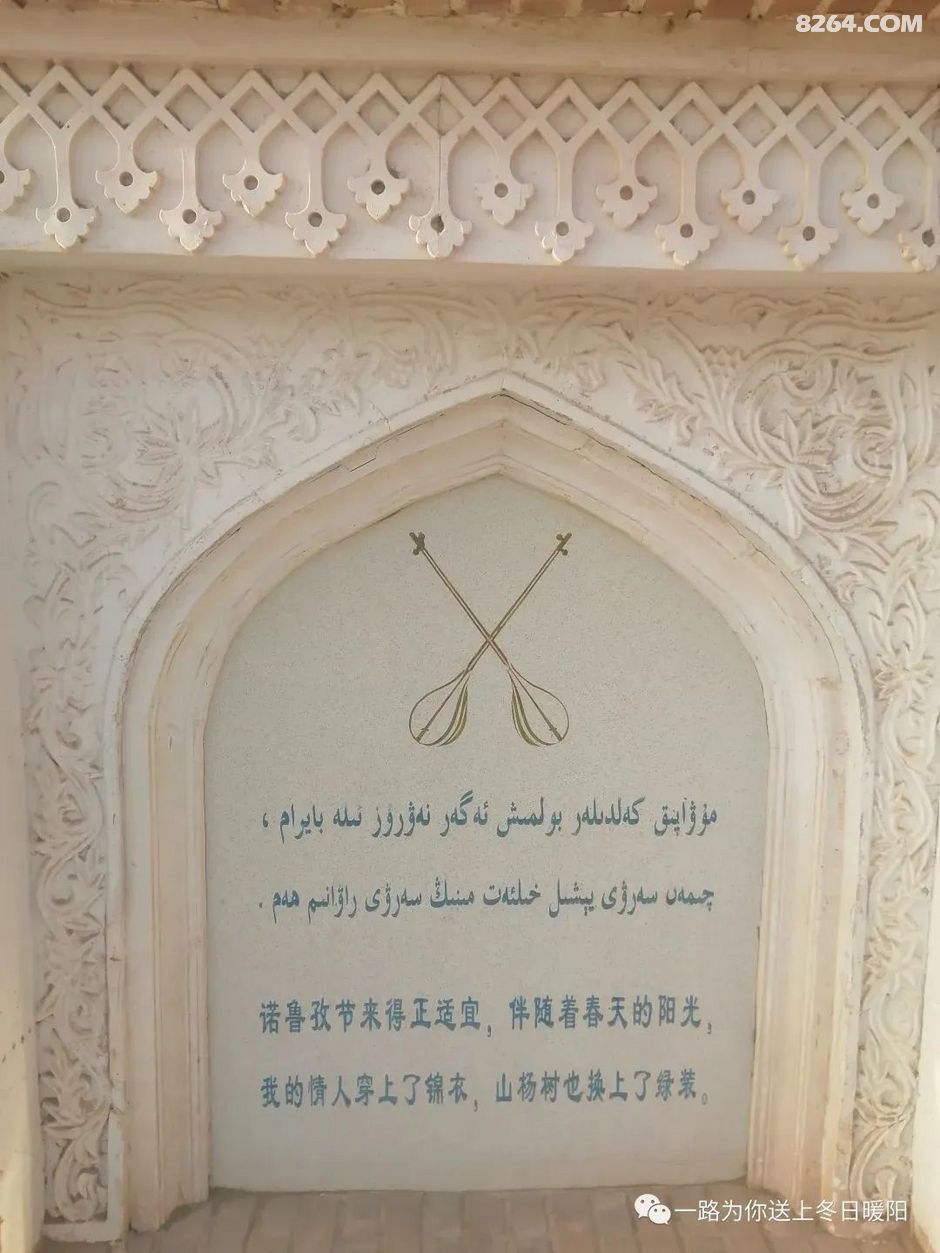 8264.COM
مۇۋاپىق كەلدىلەر بولمىش ئەگەر نەۋرۇز ئىلە بايرام ،
چىمەن سەرۋى يېشىل خىلئەت مىنىڭ سەرۋى راۋانىم ھەم .
诺鲁孜节来得正适宜，伴随着春天的阳光，
我的情人穿上了锦衣，山杨树也换上了绿装。
一路为你送上冬日暖阳